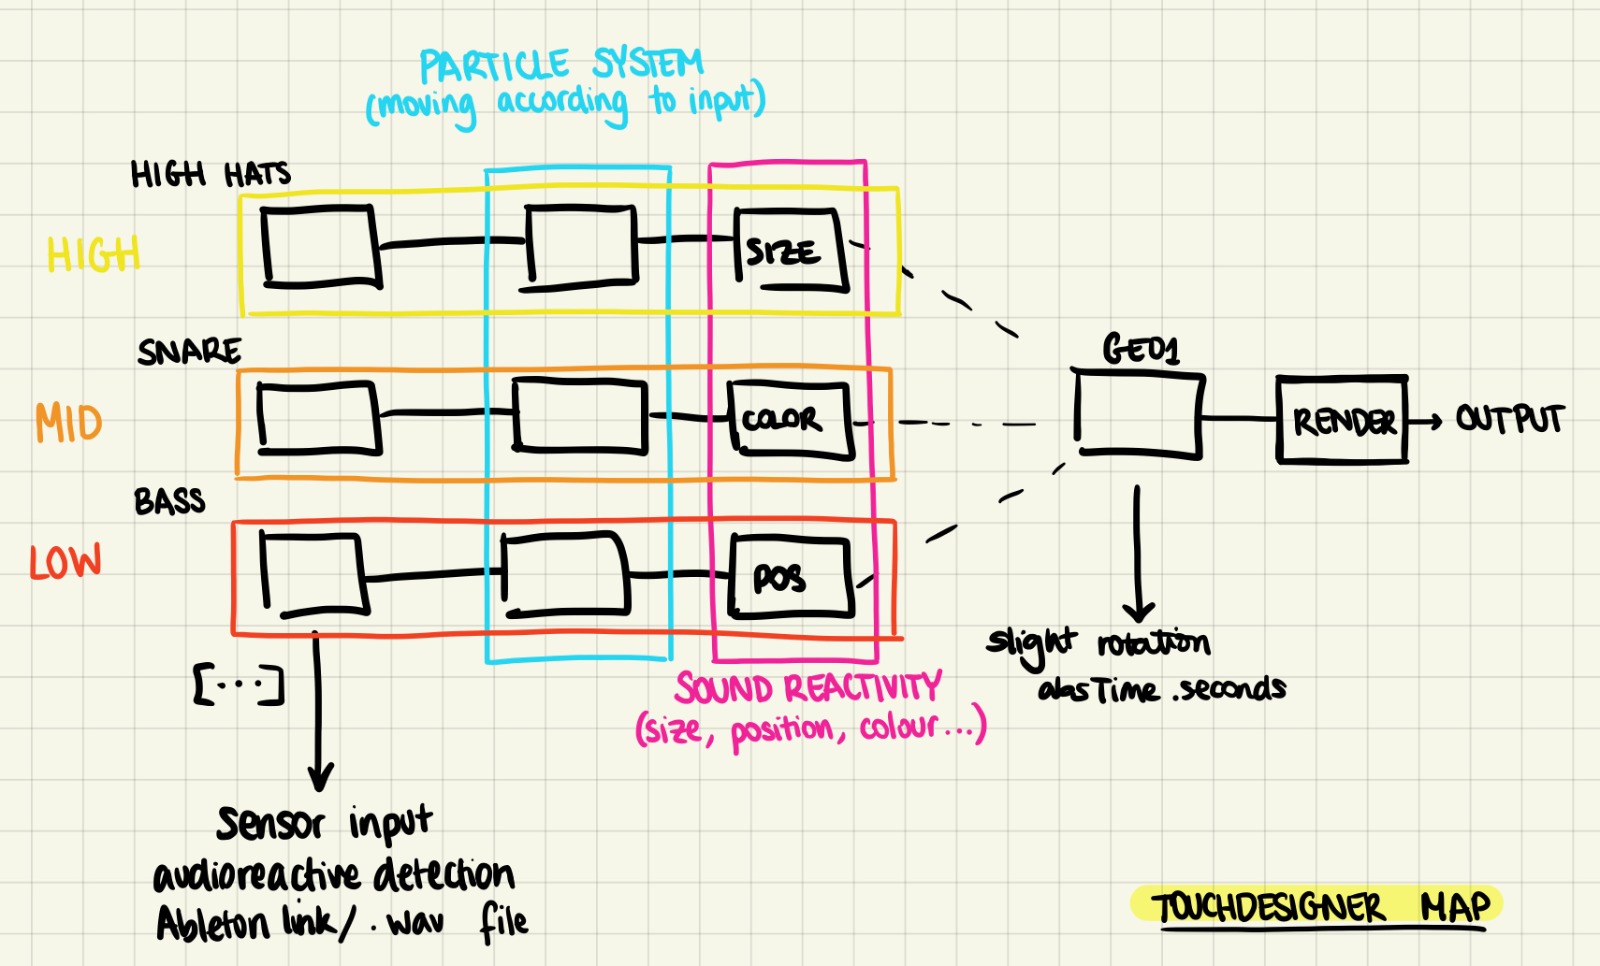 PARTICLE SYSTEM
(moving according to input)
HIGH HATS
HIGH
SIZE
SNARE
MID
COLOR
GEO1
RENDER
OUTPUT
BASS
LOW
POS
[...]
SOUND REACTIVITY
(size, position, colour...)
slight rotation
absTime.seconds
sensor input
audioreactive detection
Ableton link/.wav file
TOUCHDESIGNER MAP